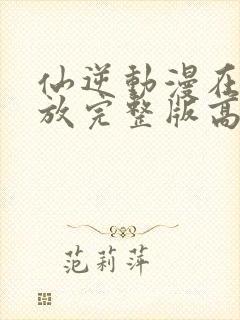 仙逆動漫在
放完整版高
范莉萍